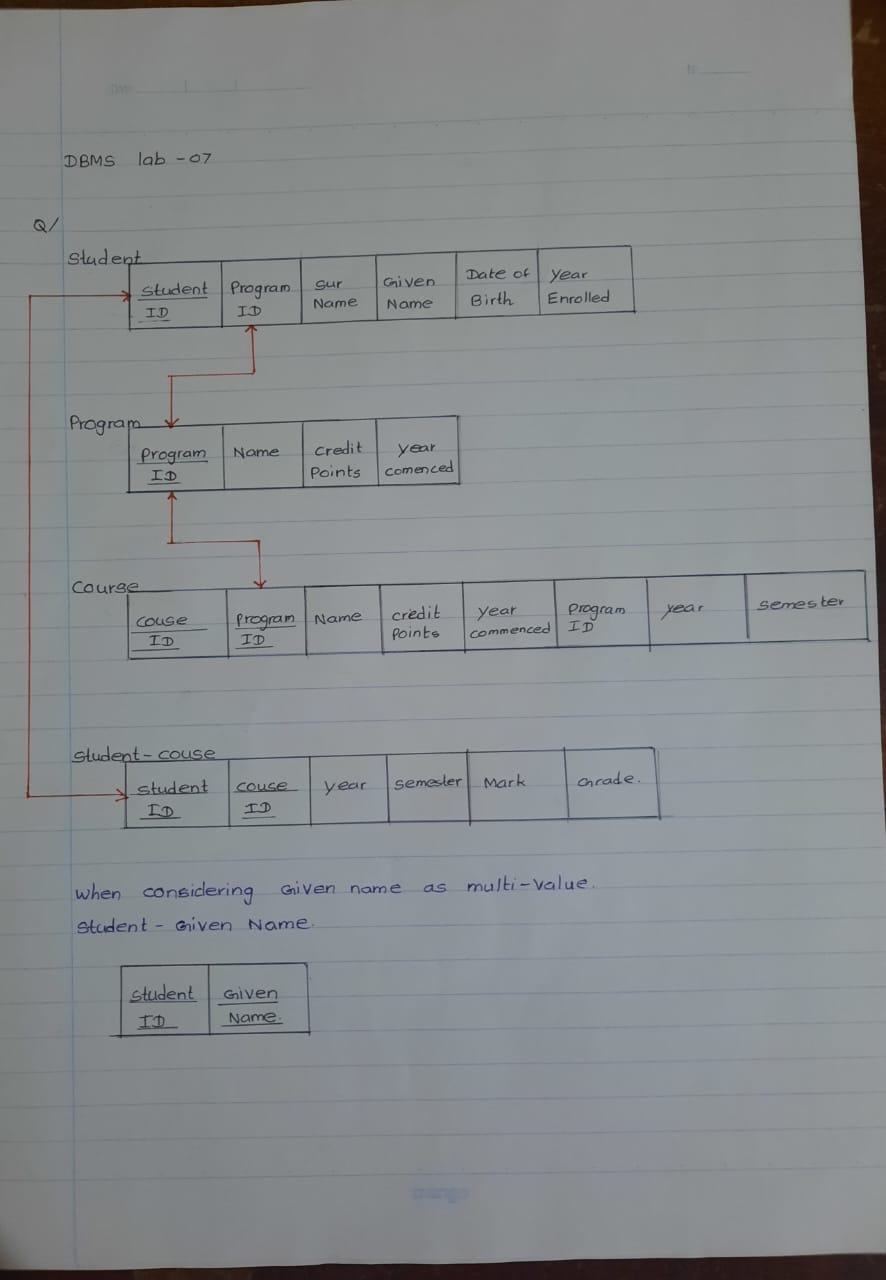 DBMS lab - 07
Q/
Student
Student ID | Program ID | Sur Name | Given Name | Date of Birth | Year Enrolled
Program
Program ID | Name | credit Points | year comenced
Course
couse ID | Program ID | Name | credit Points | year commenced | Program ID | year | semester
Student - couse
Student ID | couse ID | year | semester | Mark | Grade.
when considering Given name as multi-value.
Student - Given Name.
Student ID | Given Name.